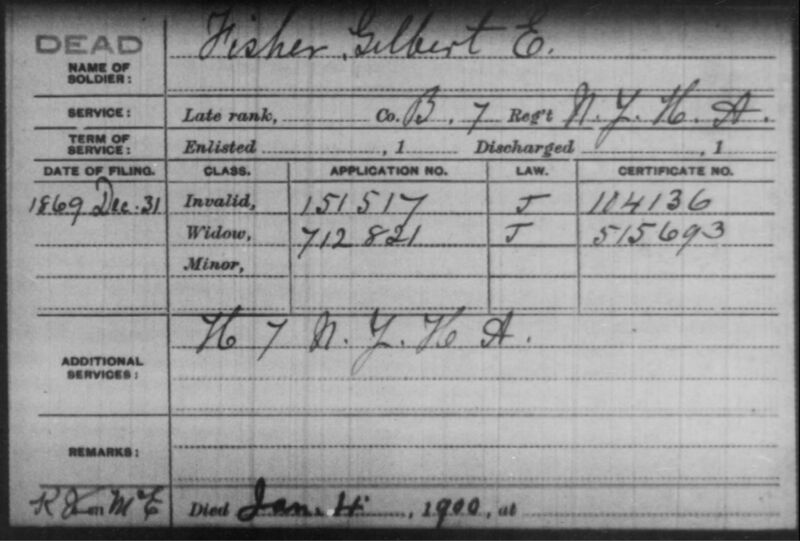 DEAD
Fisher, Gilbert E.
NAME OF SOLDIER:
SERVICE: Late rank, Co. B, 7 Reg't N.Y.H.A.
TERM OF SERVICE: Enlisted , 1 Discharged , 1
DATE OF FILING. CLASS. APPLICATION NO. LAW. CERTIFICATE NO.
1869 Dec. 31 Invalid, 151517 J 104136
Widow, 712821 J 515693
Minor,
ADDITIONAL SERVICES: H 7 N.Y.H A.
REMARKS:
Died Jan. 4, 1900, at